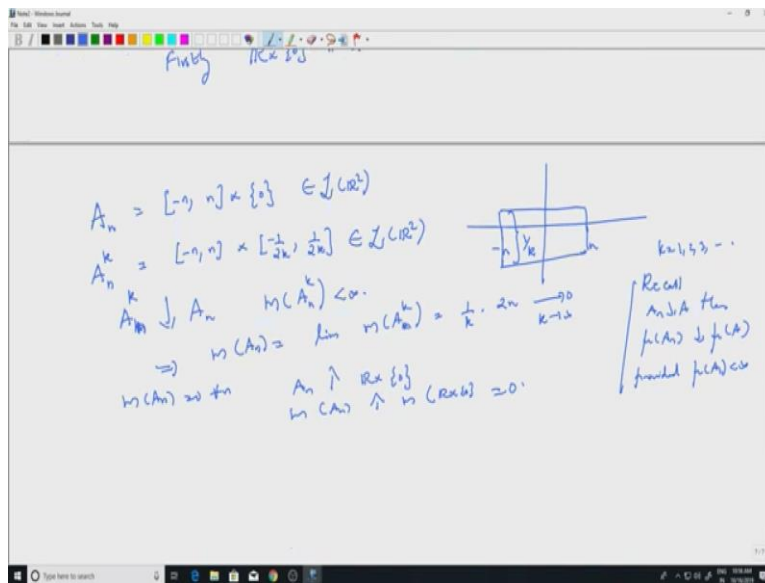 Note2 - Windows Journal
File Edit View Insert Actions Tools Help
B I
Firstly ℝ × {0}
A_n = [-n, n] × {0} ∈ L(ℝ²)
A_n^k = [-n, n] × [-1/2k, 1/2k] ∈ L(ℝ²)
A_n^k ↓ A_n m(A_n^k) < ∞.
⇒ m(A_n) = lim m(A_n^k) = 1/k · 2n → 0
k→∞
m(A_n) = 0 ∀n A_n ↑ ℝ × {0}
m(A_n) ↑ m(ℝ×{0}) = 0.
-n 1/k n
k=1,2,3, - -
Recall
A_n ↓ A then
μ(A_n) ↓ μ(A)
provided μ(A_1) < ∞
Type here to search
ENG 10:56 AM
IN 10/16/2019